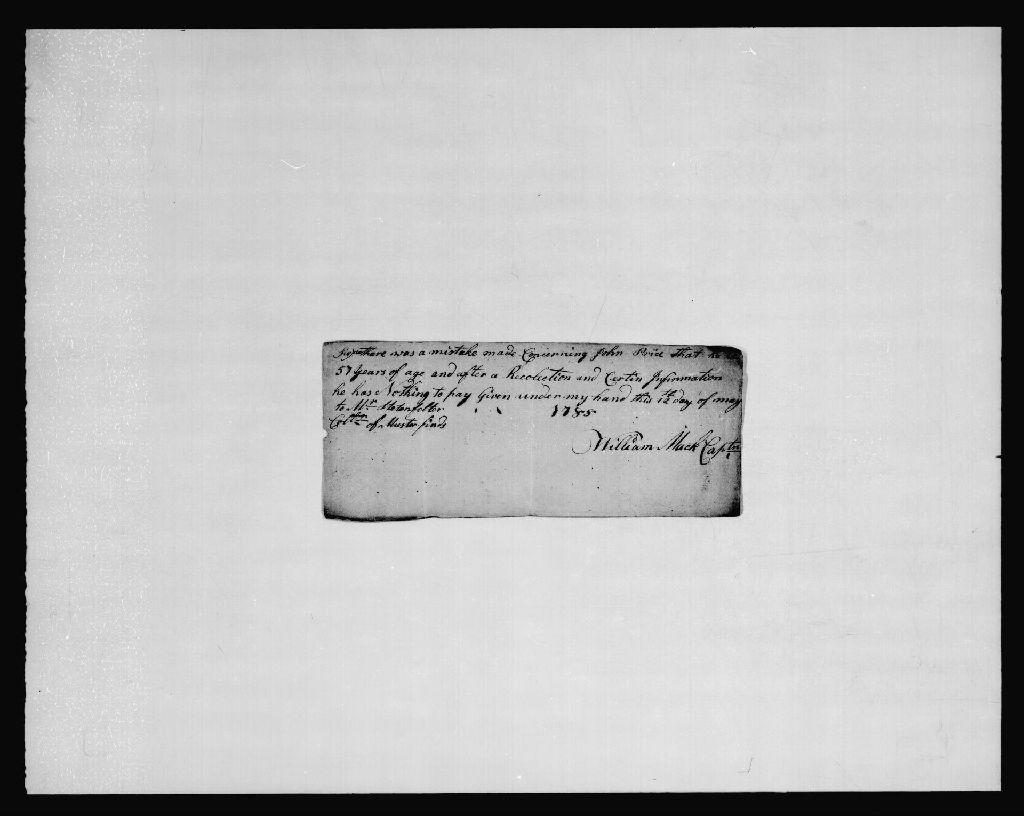 there was a mistake made Concerning John that he
57 years of age and after a Recolection and Certin Information
he has Nothing to pay Given under my hand this 12th day of may
to Mr 1785
of Muster finds
William Mack Captn